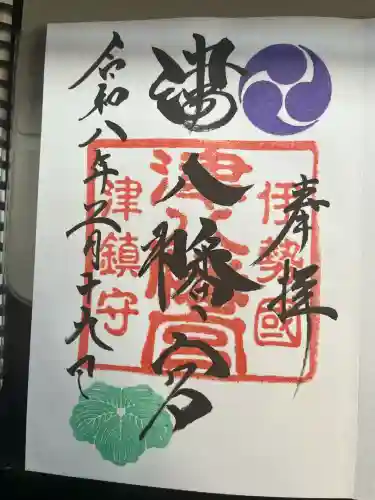 奉拝
伊勢國
津八幡宮
津八幡宮
津鎮守
令和八年二月十九日